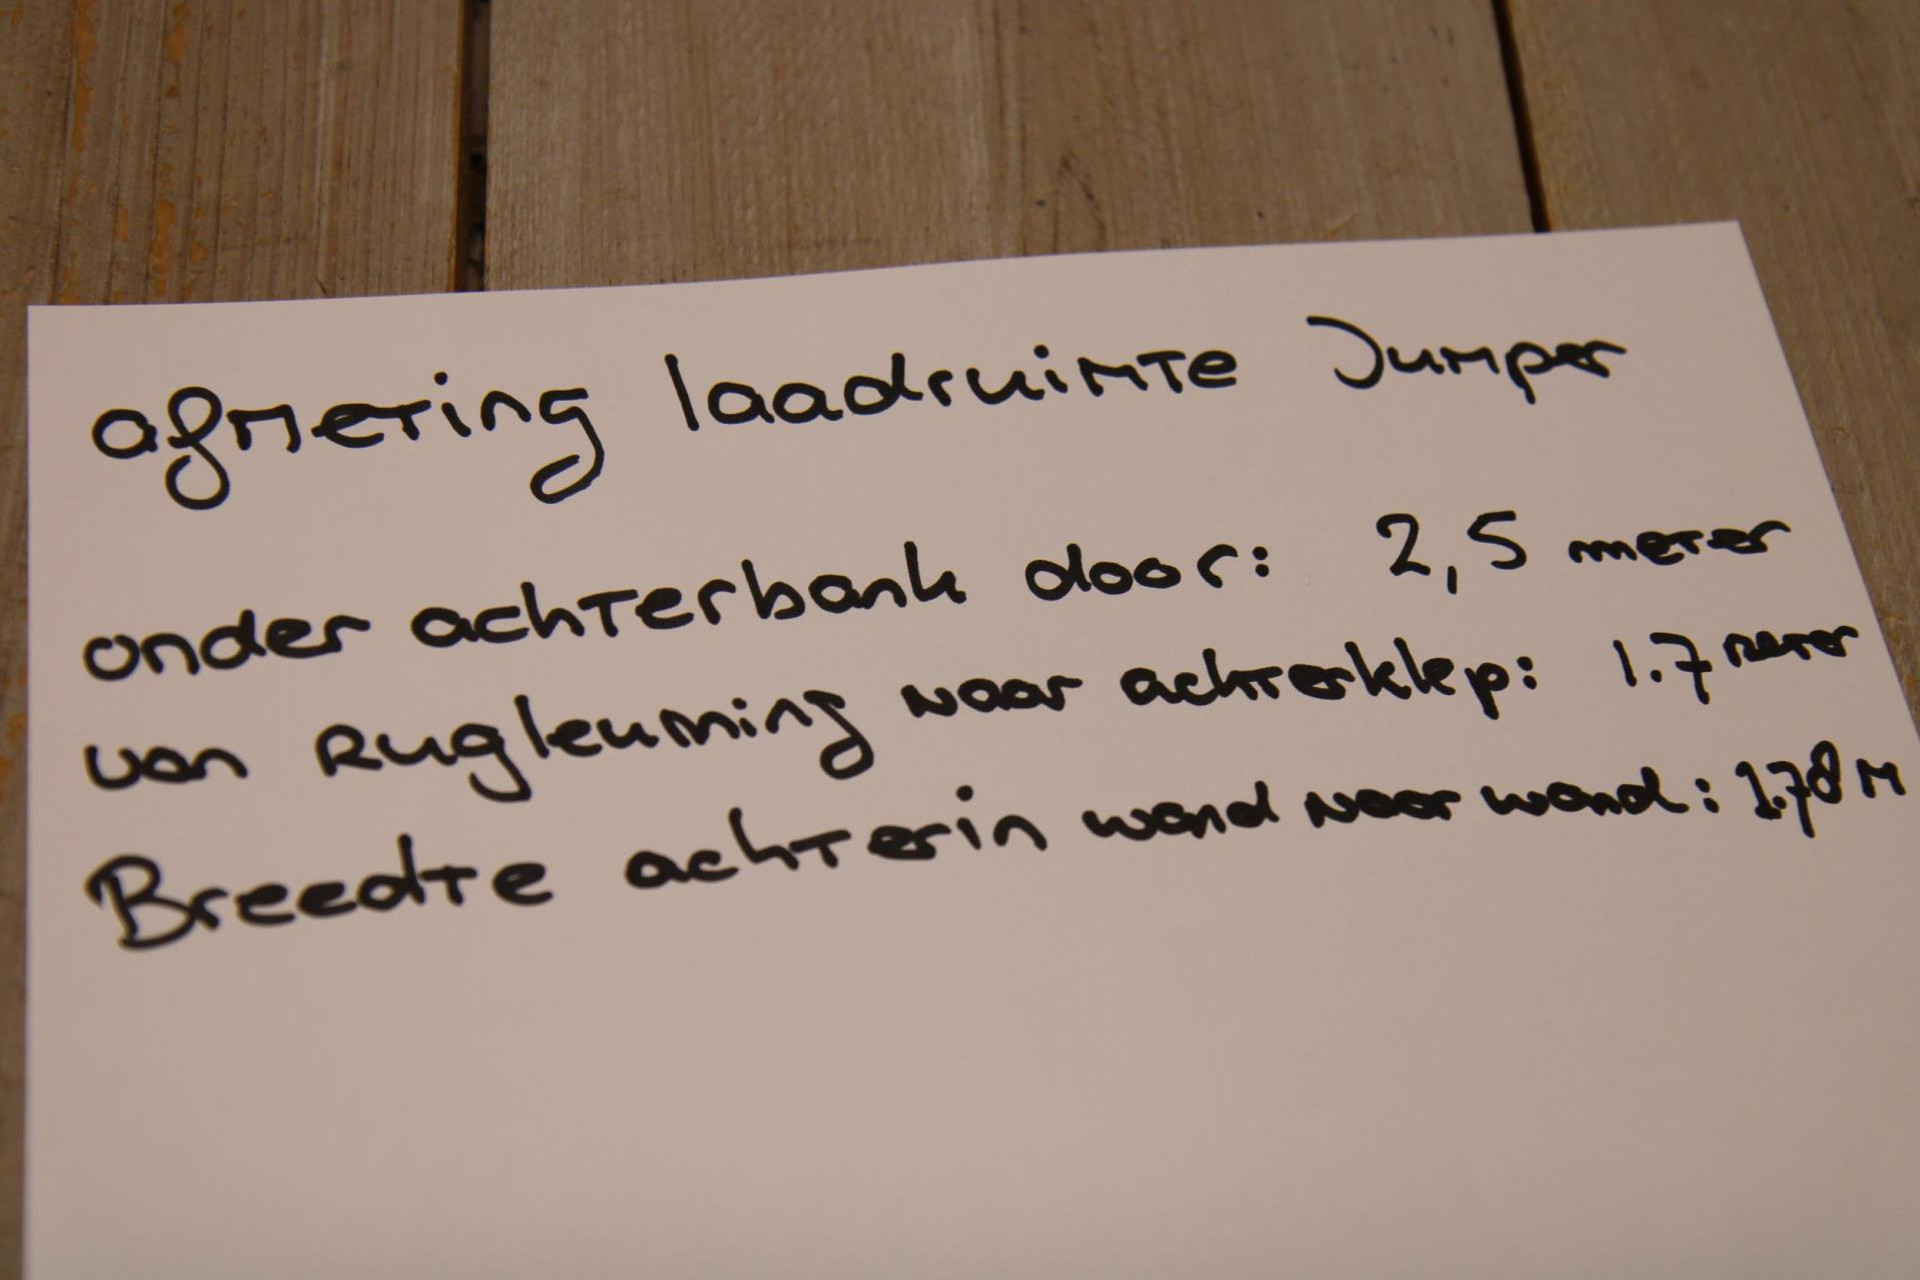 afmeting laadruimte Jumper
onder achterbank door: 2,5 meter
van Rugleuning naar achterklep: 1.7 meter
Breedte achterin wand naar wand: 1.78 M